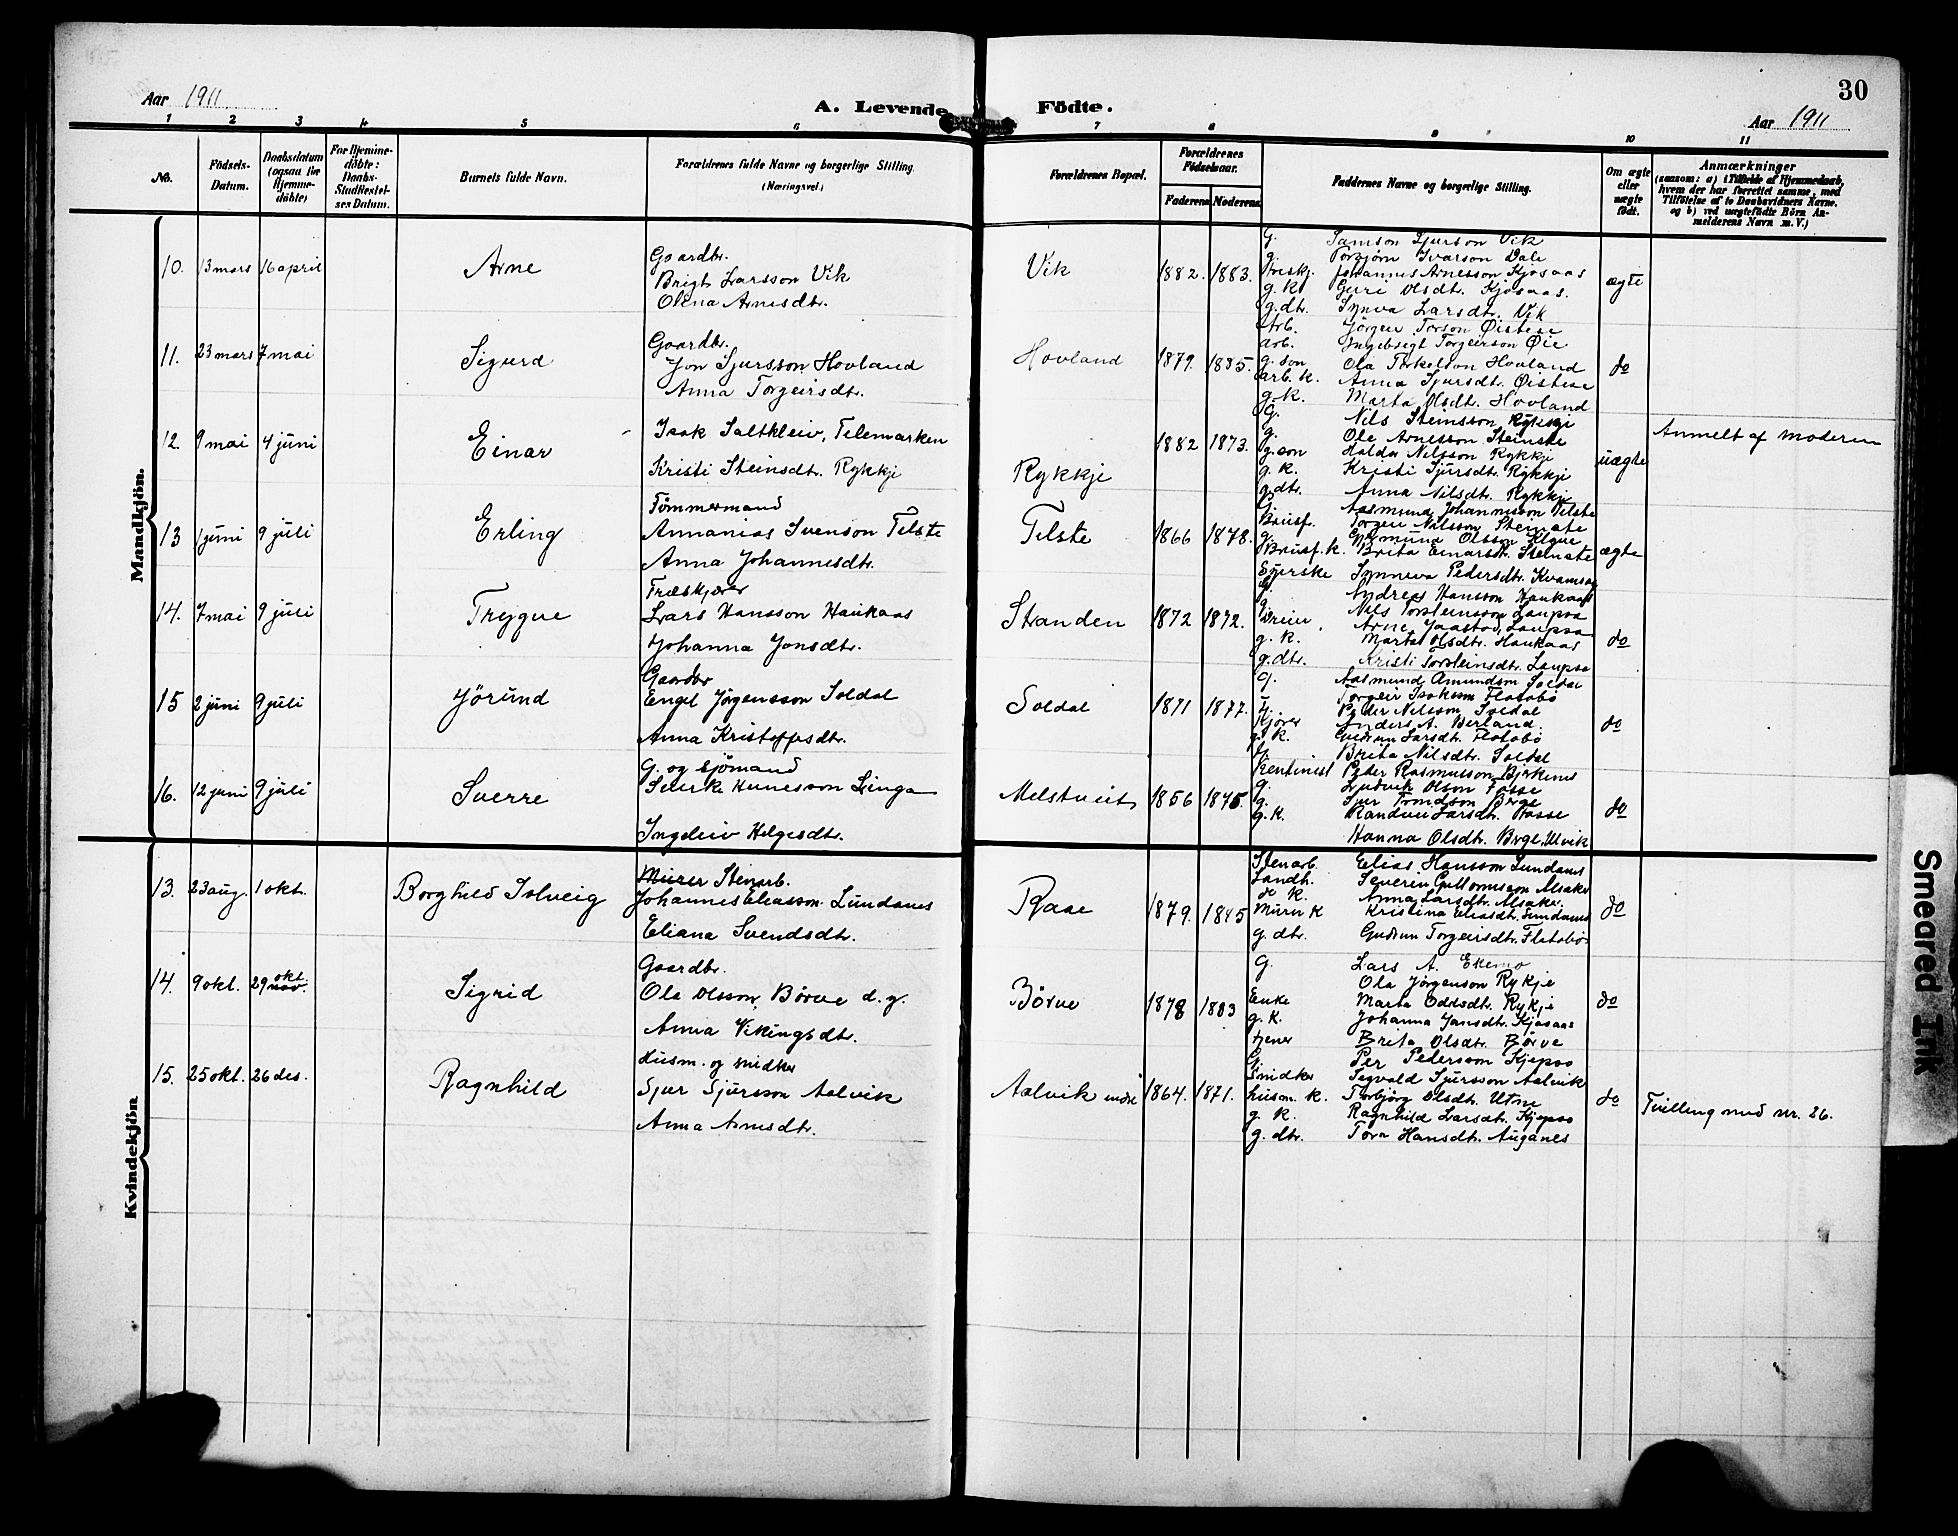 30
Aar 1911
A. Levende Födte.
Aar 1911
1 2 3 4 5 6 7 8 9 10 11
No.
Födsels-Datum.
Daabsdatum (ogsaa for Hjemme-döbte)
For Hjemme-döbte: Daabs-Stadfæstel-ses Datum.
Barnets fulde Navn.
Forældrenes fulde Navne og borgerlige Stilling.
(Næringsvei.)
Forældrenes Bopæl.
Forældrenes Födselsaar.
Faderens Moderens
Faddernes Navne og borgerlige Stilling.
Om ægte eller uægte födt.
Anmærkninger
(saasom: a) i Tilfælde af Hjemmedaab,
hvem der har forrettet samme, med
Tilföielse af to Daabsvidners Navne.
og b) ved uægtefödte Börn An-
melderens Navn m.V.)
Mandkjön.
10. 13 mars 16 april Arne
Gaardbr.
Brigt Larsson Vik
Olena Arnesdtr.
Vik 1882. 1883.
G. Samson Sjurson Vik
g. Torbjörn Ivarson Dale
Johannes Arnesson Kjosaas
g. k. Guri Olsdtr. Kjosaas.
g. dtr. Synva Larsdtr. Vik
ægte
11. 23 mars 7 mai Sigurd
Gaardbr.
Jon Sjursson Hovland
Anna Torgeirsdtr.
Hovland 1879. 1885.
Arb. Jörgen Torson Öistese
arb. Ingebrigt Torgeirson Öie
g. son Ola Torkelson Hovland
arb. k. Anna Sjursdtr. Öistese
g. k. Marta Olsdtr. Hovland
do
12. 9 mai 4 juni Einar
Isak Saltkleiv, Telemarken
Kristi Steinsdtr. Rykkje
Rykkje 1882 1873.
G. Nils Steinsson Rykkje
g. Ole Arnesson Steinstø
g. son Haldor Nilsson Rykkje
g. k. Kristi Sjursdtr. Rykkje
g. dtr. Anna Nilsdtr. Rykkje
uægte
Anmelt af moderen
13 1 juni 9 juli Erling
Tömmermand
Annanias Svenson Tilste
Anna Johannesdtr.
Tilste 1866 1878.
G. Aasmund Johannesson Tilste
Brusf. Torgeir Nilsson Steinstø
g. Olsson
Brusf. k. Brita Einarsdtr. Steinstø
Syerske Synneva Pedersdtr. Kvamsøy
ægte
14. 7 mai 9 juli Trygve
Træskjærer
Lars Hansson Haukaas
Johanna Jonsdtr.
Stranden 1872 1872.
G. Andreas Hansson Haukaas
g. Nils Torsteinsson Laupsa
Arne Jaastad, Laupsa
g. k. Marta Olsdtr. Haukaas
g. dtr. Kristi Torsteinsdtr. Laupsa
do
15 2 juni 9 juli Jörund
Gaardbr
Engel Jörgensson Soldal
Anna Kristoffersdtr.
Soldal 1871 1877.
G. Aasmund Amundson Soldal
Torgeir Isakson Flatabö
Peder Nilsson Soldal
Anders A. Berland.
g. k. Gudrun Larsdtr. Flatabö
Brita Nilsdtr. Soldal
do
16. 12 juni 9 juli Sverre
G. og sjömand
Linga
Ingeleiv Helgesdtr.
Melstveit 1856 1875.
Rentenist Peder Rasmusson Bjrkenes
g. Ludvik Olson Fosse
g. Sjur Trondson Berge
g. k. Randvei Larsdtr. Fosse
Hanna Olsdtr. Berge, Ulvik
do
Kvindekjön
13. 23 aug. 1 okt. Borghild Solveig
Murer Stenarb.
Johannes Eliasson Lundanes
Eliana Svendsdtr.
Raae 1879. 1885
Stenarb. Elias Hansson Lundanes
Landh. Severin Guttormsson Alsaker
do k. Anna Larsdtr. Alsaker.
Murer K Kristina Eliasdtr. Lundanes
g. dtr. Gudrun Torgeirsdtr. Flatabö
do
14. 9 okt. 29 nov. okt. Sigrid
Gaardbr.
Ola Olsson Börve d. y.
Anna Vikingsdtr.
Börve 1878 1883
G. Lars A. Ekemo
Ola Jörgenson Rykje
Enke Marta Oddsdtr. Rykje
g. K. Johanna Jansdtr. Kjosaas
tjener Brita Olsdtr. Börve
do
15. 25 okt. 26 des. Ragnhild
Husm. og snidker
Sjur Sjursson Aalvik
Anna Arnesdtr.
Aalvik indre 1864. 1871.
G. Per Pederson Kjepso
Snidker Sigvald Sjursson Aalvik
husm. k. Torbjörg Olsdtr. Utne
g. k. Ragnhild Larsdtr. Kjepso
g. dtr. Tora Hansdtr. Auganes
do
Tvilling med nr. 26.
Smeared Ink